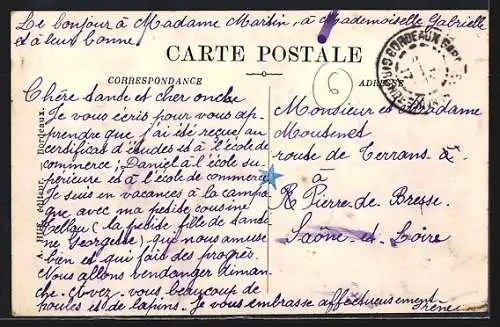 Le bonjour à Madame Martin, à Mademoiselle Gabrielle
et à leur bonne
CARTE POSTALE
CORRESPONDANCE
ADRESSE
Chère tante et cher oncle
Je vous écris pour vous ap-
prendre que j'ai été reçue au
certificat d'études et à l'école de
commerce; Daniel à l'école su-
périeure et à l'école de commerce
Je suis en vacances à la campa-
gne avec ma petite cousine
(la petite fille de tante
Georgette) qui nous amuse
bien et qui fait des progrès.
Nous allons vendanger diman-
che. Avez-vous beaucoup de
poules et de lapins. Je vous embrasse affectueusement
Irène
Monsieur et Madame
route de Terrans
à
Pierre-de-Bresse
Saône-et-Loire
BORDEAUX
6
éditeur - Bordeaux.